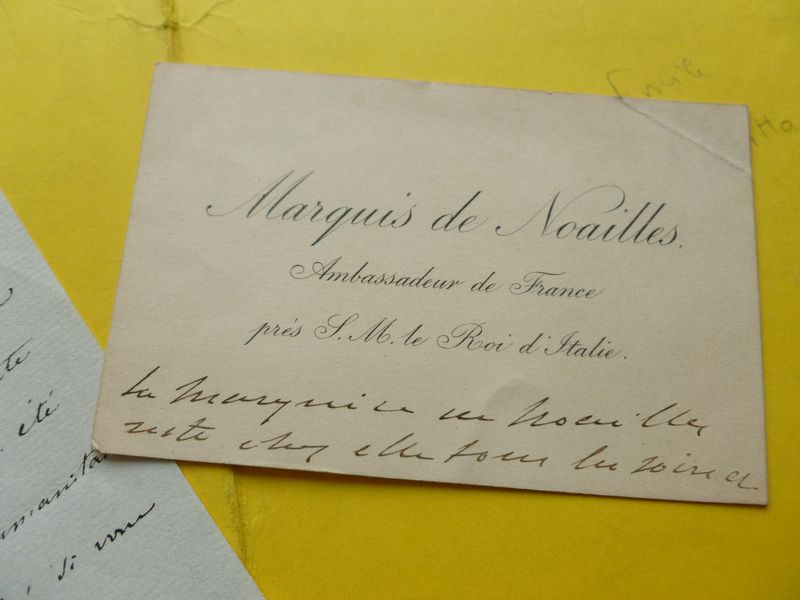 Emile
Marquis de Noailles.
Ambassadeur de France
près S. M. le Roi d'Italie.
La Marquise de Noailles
reste chez elle tous les soirs
été
si vous